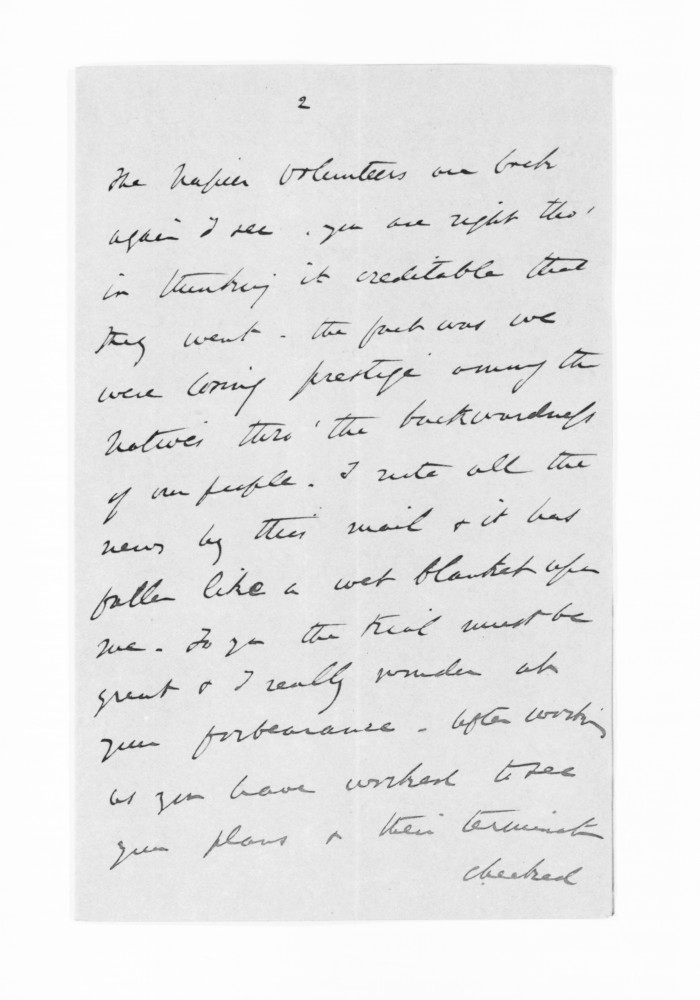 2
The Napier Volunteers are back
again I see . you are right tho'
in thinking it creditable that
they went - the fact was we
were losing prestige among the
Natives thro' the backwardness
of our people . I note all the
news by this mail & it has
fallen like a wet blanket upon
me . To you the trial must be
great & I really wonder at
your forbearance . After working
as you have worked to see
your plans & their
checked